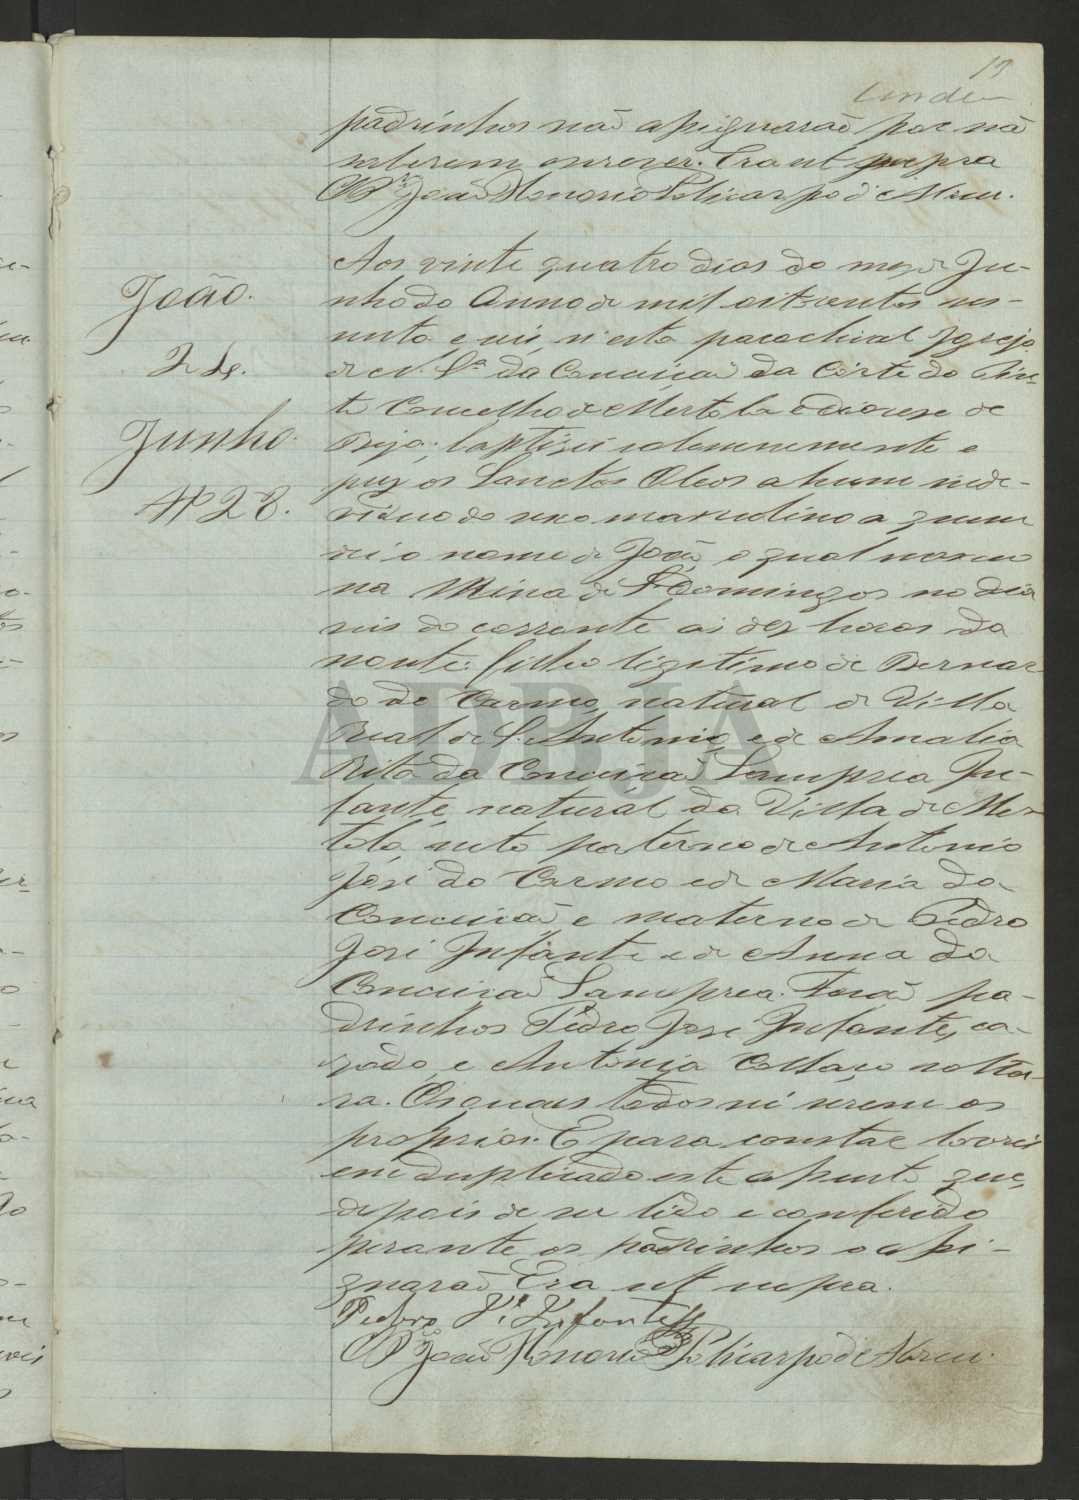 19
padrinhos não assignarão por não
saberem escrever. Era ut supra
O Pr João Honorio Policarpo d'Abreu.
Aos vinte quatro dias do mez de Ju-
nho do Anno de mil oitocentos ses-
senta e seis, n'esta parochial Igreja
de N. Sª da Conceição da Côrte do Pin-
to Concelho de Mertola e diocese de
Beja, baptizei solemnemente e
puz os Sanctos Oleos a hum indi-
viduo do sexo masculino a quem
dei o nome de João, o qual nasceu
na Mina de S. Domingos no dia
seis do corrente as dez horas da
noute: filho ligitimo de Bernar-
do do Carmo, natural de Villa
Real de S. Antonio, e de Amalia
Rita da Conceição Samprea In-
fante, natural da Villa de Mer-
tola, neto paterno de Antonio
José do Carmo e de Maria da
Conceição e materno de Pedro
José Infante e de Anna da
Conceição Samprea. Forão pa-
drinhos Pedro José Infante, ca-
zado, e Antonia Collaço soltei-
ra. Os quaes todos sei serem os
proprios. E para constar lavrei
em duplicado este assento que,
depois de ser lido e conferido
perante os padrinhos o assi-
gnarão. Era ut supra.
Pedro Jé Infante
O Pr João Honorio Policarpo de Abreu.
João.
24.
Junho.
Nº 28.
ADBJA